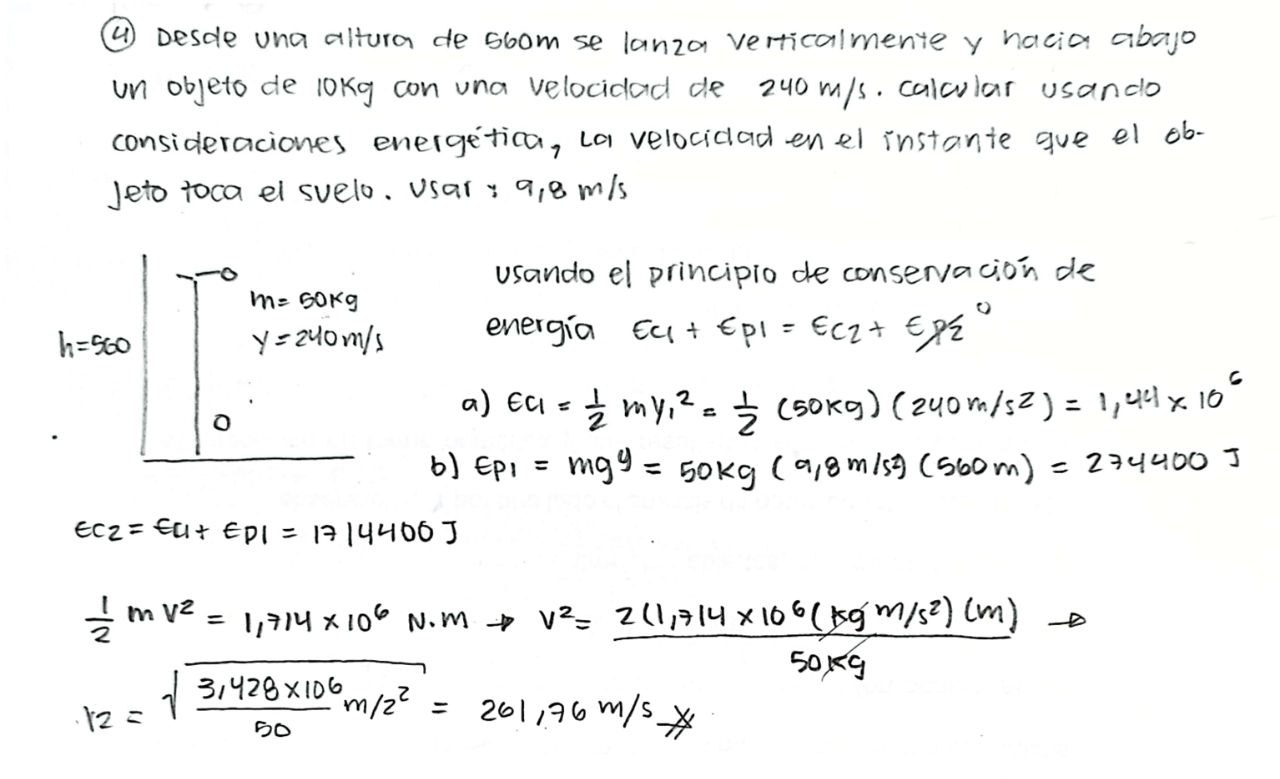 ④ Desde una altura de 560m se lanza verticalmente y hacia abajo
un objeto de 10Kg con una velocidad de 240 m/s. calcular usando
consideraciones energética, La velocidad en el instante que el ob-
jeto toca el suelo. Usar : 9,8 m/s
usando el principio de conservación de
energía Ec1 + Ep1 = Ec2 + Ep2 0
h=560
m= 50Kg
V=240m/s
a) Ec1 = 1/2 mv₁² = 1/2 (50Kg) (240m/s²) = 1,44 x 10⁶
b) Ep1 = mgy = 50Kg (9,8m/s²) (560m) = 274400 J
Ec2 = Ec1 + Ep1 = 1714400 J
1/2 m v² = 1,714 x 10⁶ N.m → v² = 2(1,714 x 10⁶ (kg m/s²) (m) / 50Kg →
V2 = √ 3,428x10⁶ / 50 m/2² = 261,76 m/s